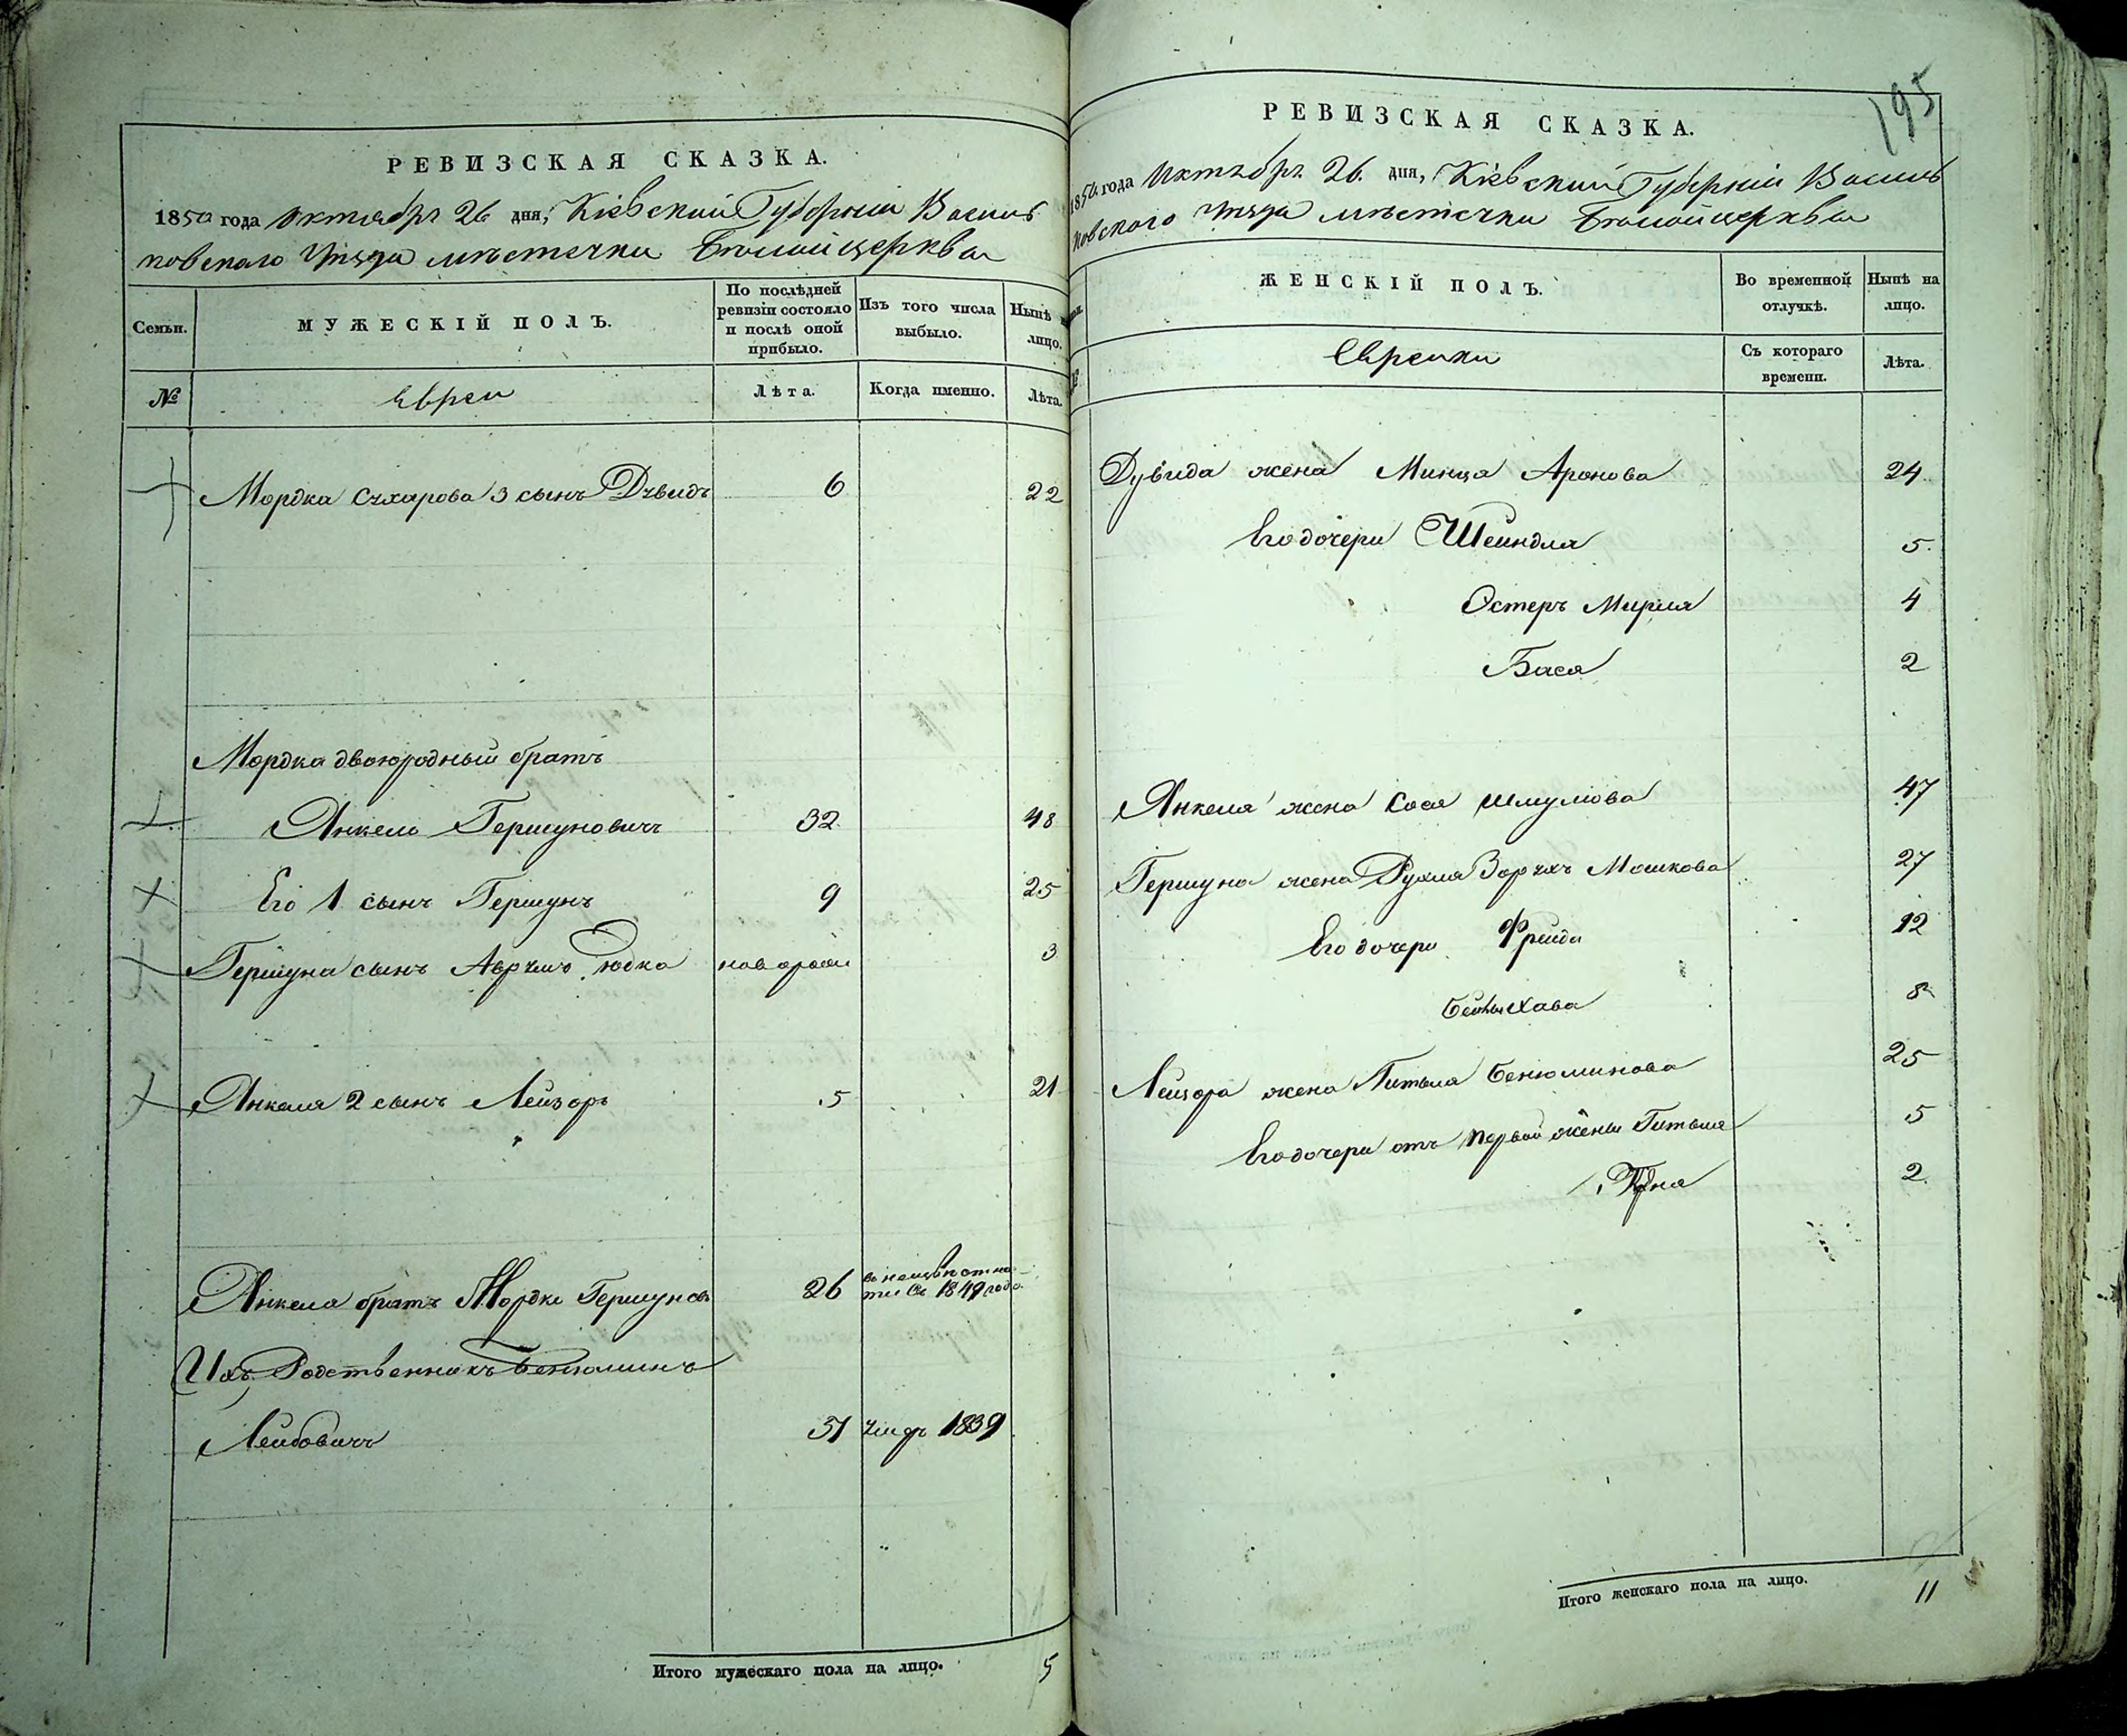 195
РЕВИЗСКАЯ СКАЗКА.
1850 года Октября 26 дня, Кіевской Губерніи Василь
ковского Уезда местечки Белой церква
Семьи.
МУЖЕСКІЙ ПОЛЪ.
По послѣдней ревизіи состояло и послѣ оной прибыло.
Изъ того числа выбыло.
Нынѣ на лицо.
№
Евреи
Лѣта.
Когда именно.
Лѣта.
Мордка Сухарова 3 сынъ Дувидъ 6 22
Мордка двоюродный братъ
Янкель Гершуновичъ 32 48
Его 1 сынъ Гершунъ 9 25
Гершуна сынъ Аврумъ Юдко новорожд 3
Янкеля 2 сынъ Лейзоръ 5 21
Янкеля братъ Мордко Гершунов 26 въ неизвѣстно
сти съ 1849 года
Ихъ Родственникъ Бенюминъ
Лейбовичъ 51 умеръ 1839
Итого мужескаго пола на лицо. 5
РЕВИЗСКАЯ СКАЗКА.
1850 года Октября 26 дня, Кіевской Губерніи Василь
ковского Уезда местечки Белой церква
ЖЕНСКІЙ ПОЛЪ.
Во временной отлучкѣ.
Нынѣ на лицо.
№
Еврейки
Съ котораго времени.
Лѣта.
Дувида жена Минця Аронова 24
Его дочери Шейндля 5
Эстеръ Мирля 4
Бася 2
Янкеля жена Сося Шмулиова 47
Гершуна жена Рухля Мошкова 27
Его дочери Фрейда 12
Бейла Хава 8
Лейзора жена Гитвля Бенюминова 25
Его дочери отъ первой жены Гитвля 5
2
Итого женскаго пола на лицо. 11